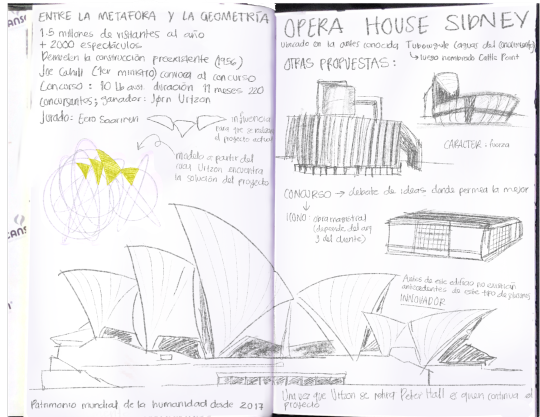 ENTRE LA METAFORA Y LA GEOMETRIA
1.5 millones de visitantes al año
+ 2000 espectáculos
Demuelen la construcción preexistente (1956)
Joe Cahill (1er ministro) convoca al concurso
Concurso: 10 lb aust. duración 11 meses 220
concursantes; ganador: Jørn Utzon
Jurado: Eero Saarinen
influencia
para que se realizara
el proyecto actual
módulo a partir del
cual Utzon encuentra
la solución del proyecto
Patrimonio mundial de la humanidad desde 2017
OPERA HOUSE SIDNEY
Ubicado en la antes conocida
(aguas del conocimiento)
luego nombrado Cattle Point
OTRAS PROPUESTAS:
CARACTER: fuerza
CONCURSO → debate de ideas donde permea la mejor
ICONO: obra magistral
(depende del arq
y del cliente)
Antes de este edificio no existían
antecedentes de este tipo de
INNOVADOR
Una vez que Utzon se retira Peter Hall es quien continua el
proyecto